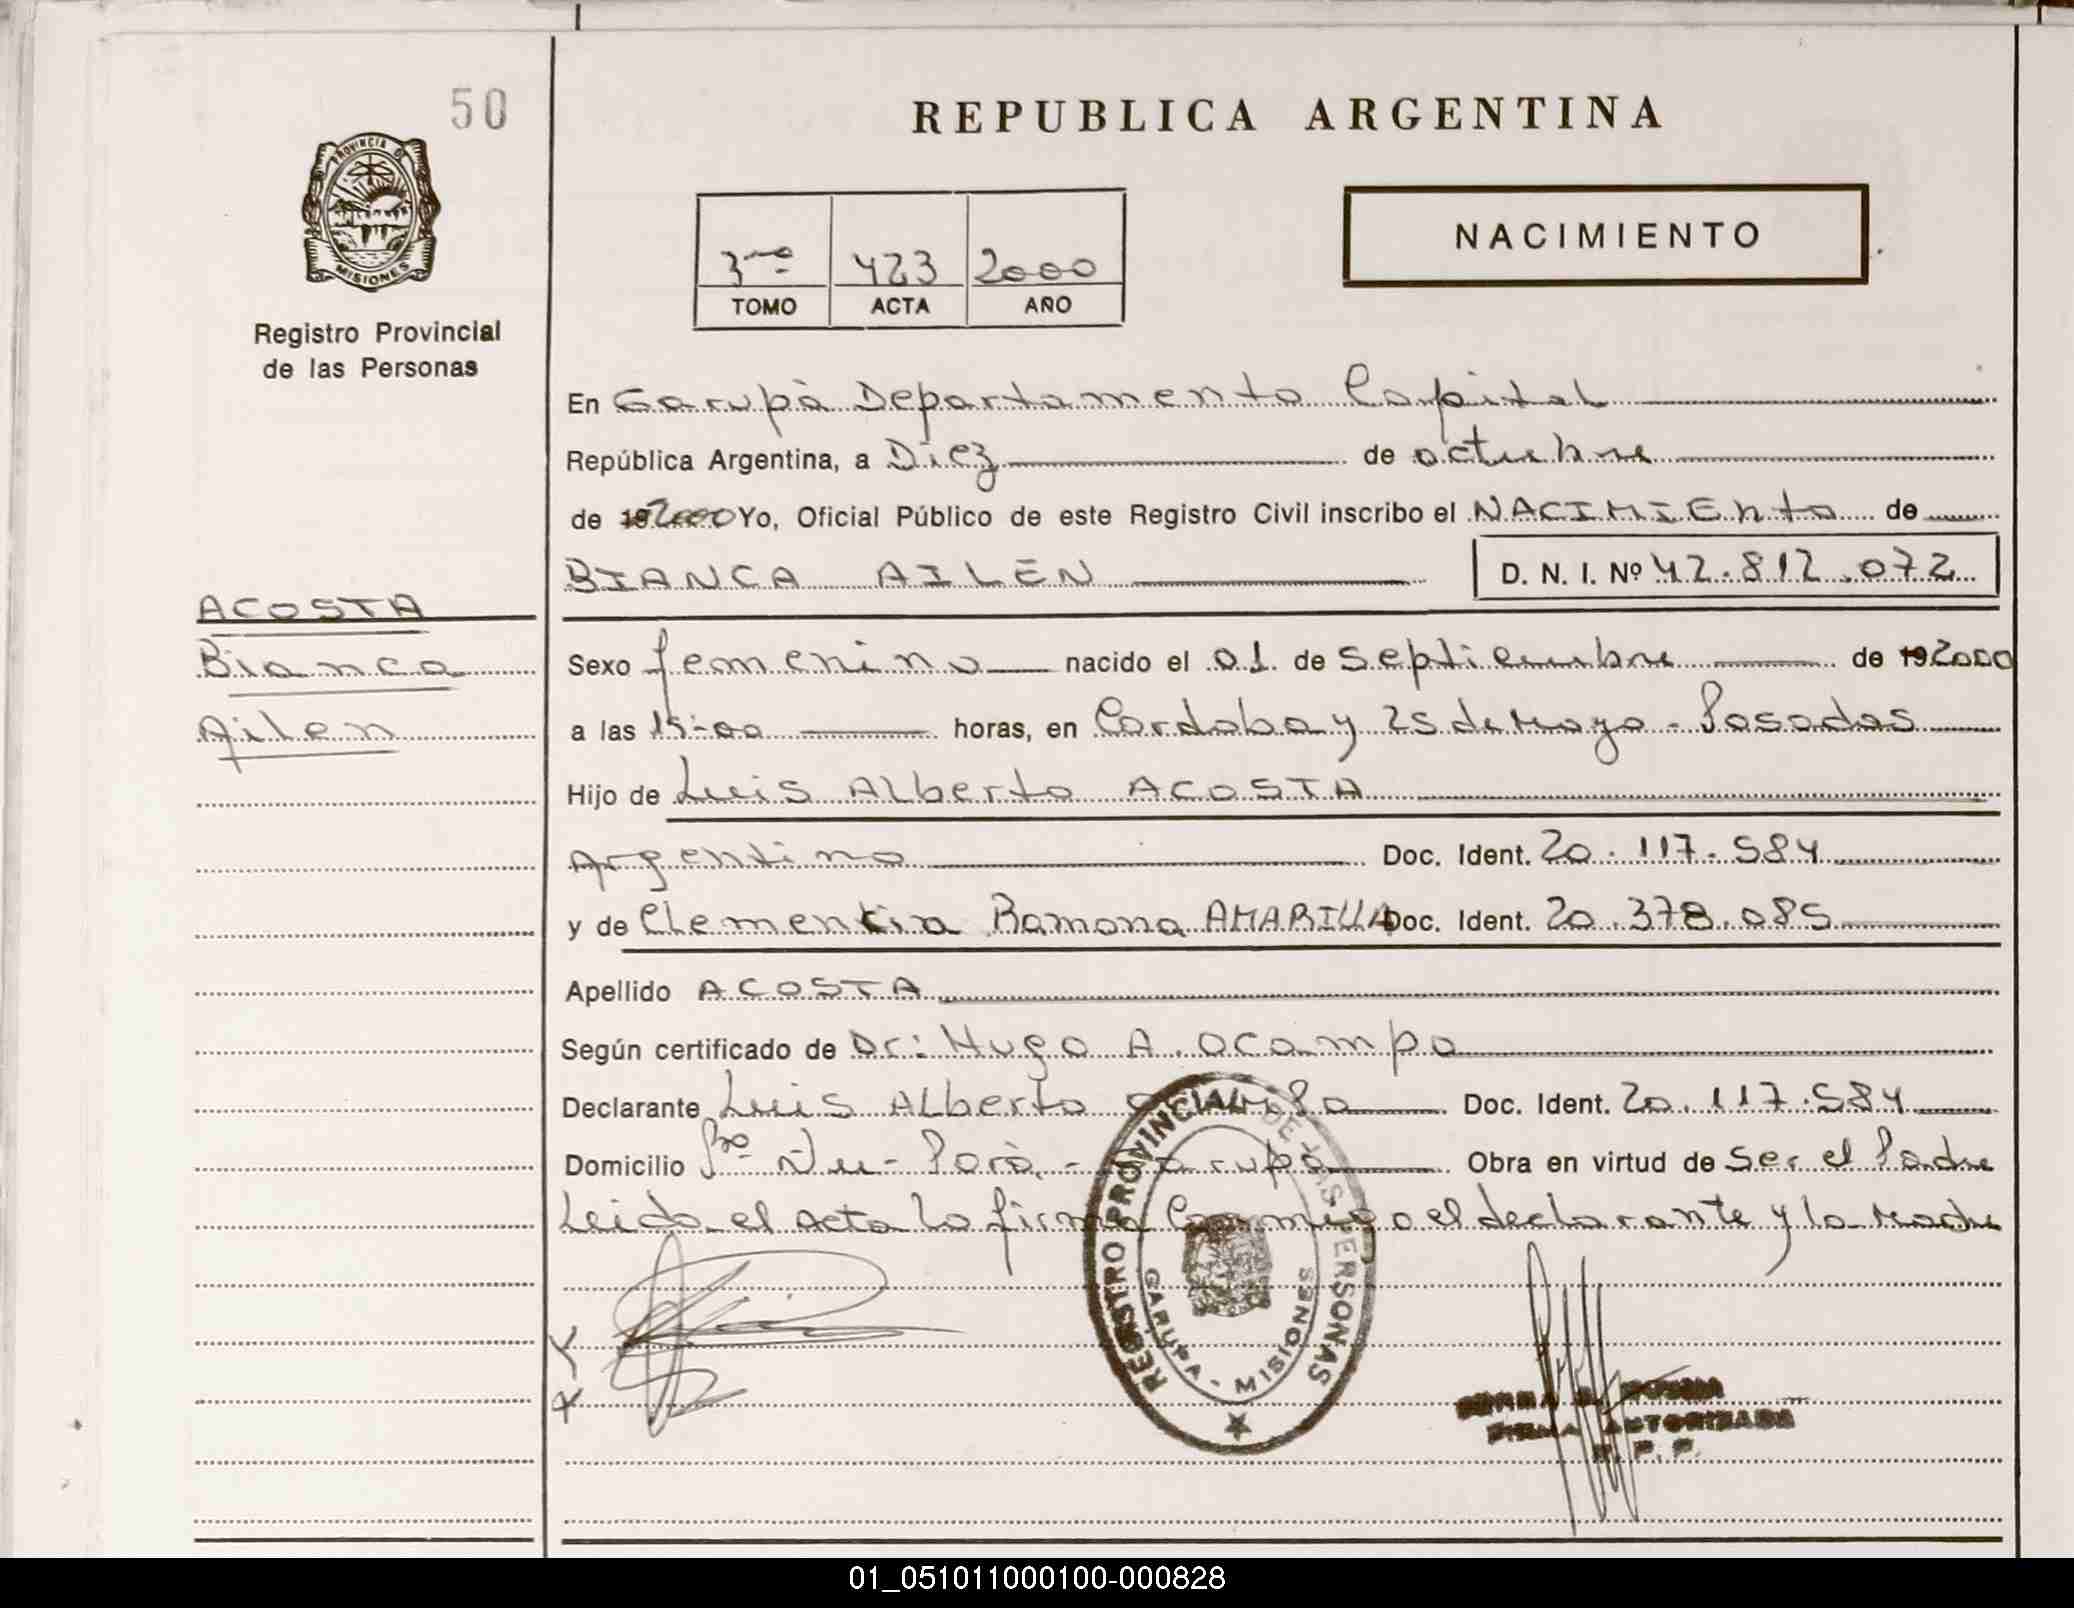 50
REPUBLICA ARGENTINA
PROVINCIA D
MISIONES
Registro Provincial
de las Personas
3ro 423 2000
TOMO ACTA AÑO
NACIMIENTO
En Garupà Departamento Capital
República Argentina, a Diez de octubre
de 19 2000 Yo, Oficial Público de este Registro Civil inscribo el NACIMIENTO de
BIANCA AILEN D. N. I. Nº 42.812.072
ACOSTA
Bianca
Ailen
Sexo femenino nacido el 01 de septiembre de 192000
a las 15-00 horas, en Cordoba y 25 de Mayo - Posadas
Hijo de Luis Alberto ACOSTA
Argentino Doc. Ident. 20.117.584
y de Clementina Ramona AMARILLA Doc. Ident. 20.378.085
Apellido ACOSTA
Según certificado de Dr: Hugo A. Ocampo
Declarante Luis Alberto Doc. Ident. 20.117.584
Domicilio Bo Ñu-Porà - Garupà Obra en virtud de Ser el Padre
Leido el Acta la firma Conmigo el declarante y la Madre
REGISTRO PROVINCIAL DE LAS PERSONAS
GARUPA - MISIONES
FIRMA AUTORIZADA
01_051011000100-000828